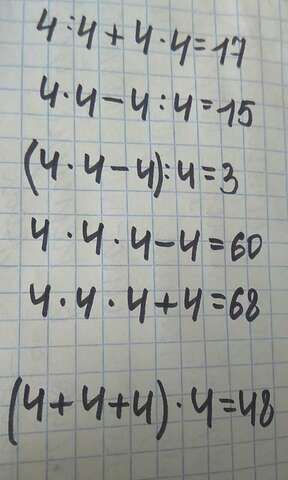 4:4+4·4=17
4·4-4:4=15
(4·4-4):4=3
4·4·4-4=60
4·4·4+4=68
(4+4+4)·4=48